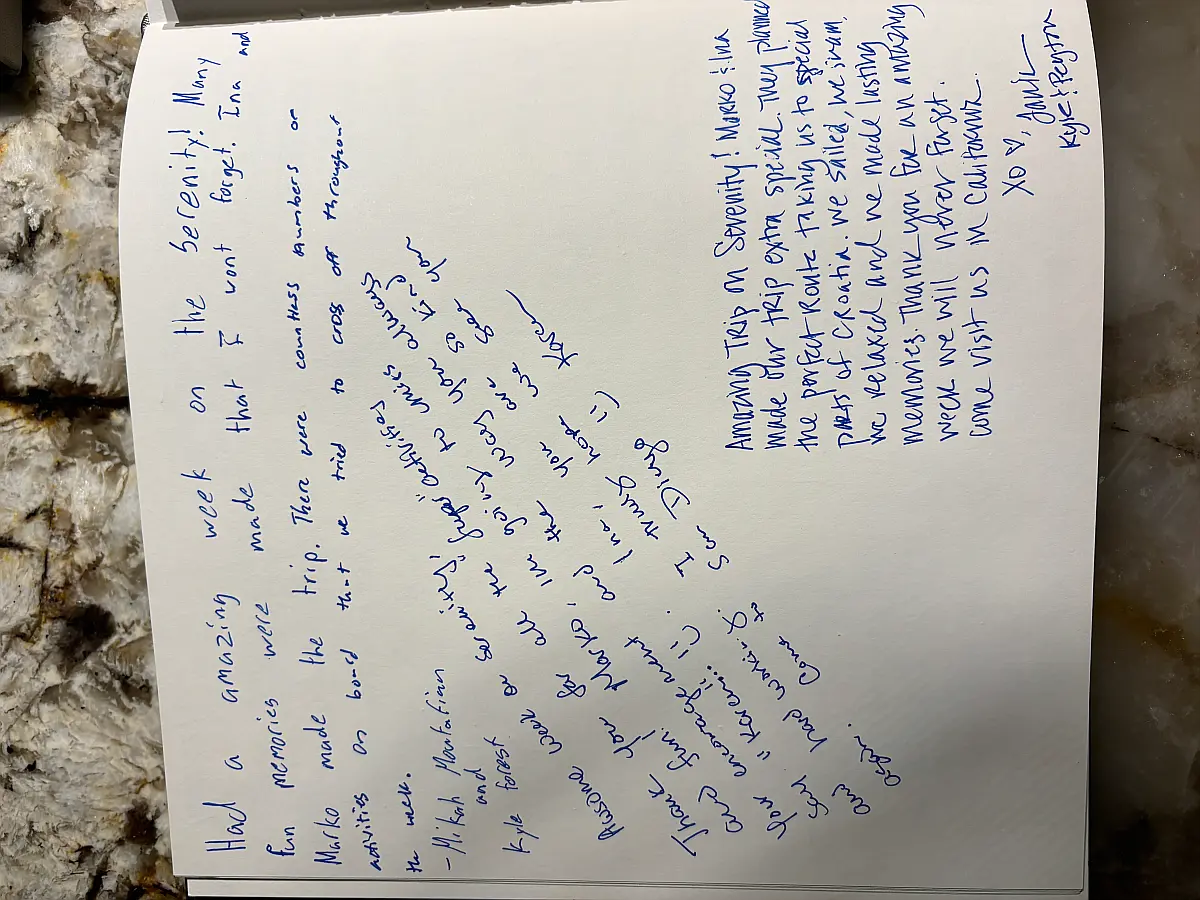 Had a amazing week on the Serenity! Many
fun memories were made that I wont forget. Ina and
Marko made the trip. There were countless numbers or
activities on board that we tried to cross off throughout
the week.
- Mikah
and
Kyle forest
Awsome week on serenity! activities
Thank you for all the going to miss always
and fun! Marko, in the way you so kind
your encouragement and Ina, you are
say "Koren!!" (:. I truly hope we see you
and hard working. San Diego (: Karen
again. Come to
Amazing Trip on Serenity! Marko & Ina
made our trip extra special. They planned
the perfect Route taking us to special
parts of Croatia. we sailed, we swam,
we relaxed and we made lasting
memories. Thank you for an amazing
week we will never forget.
come visit us in California.
XO ♡, Janie
Kyle & Peyton